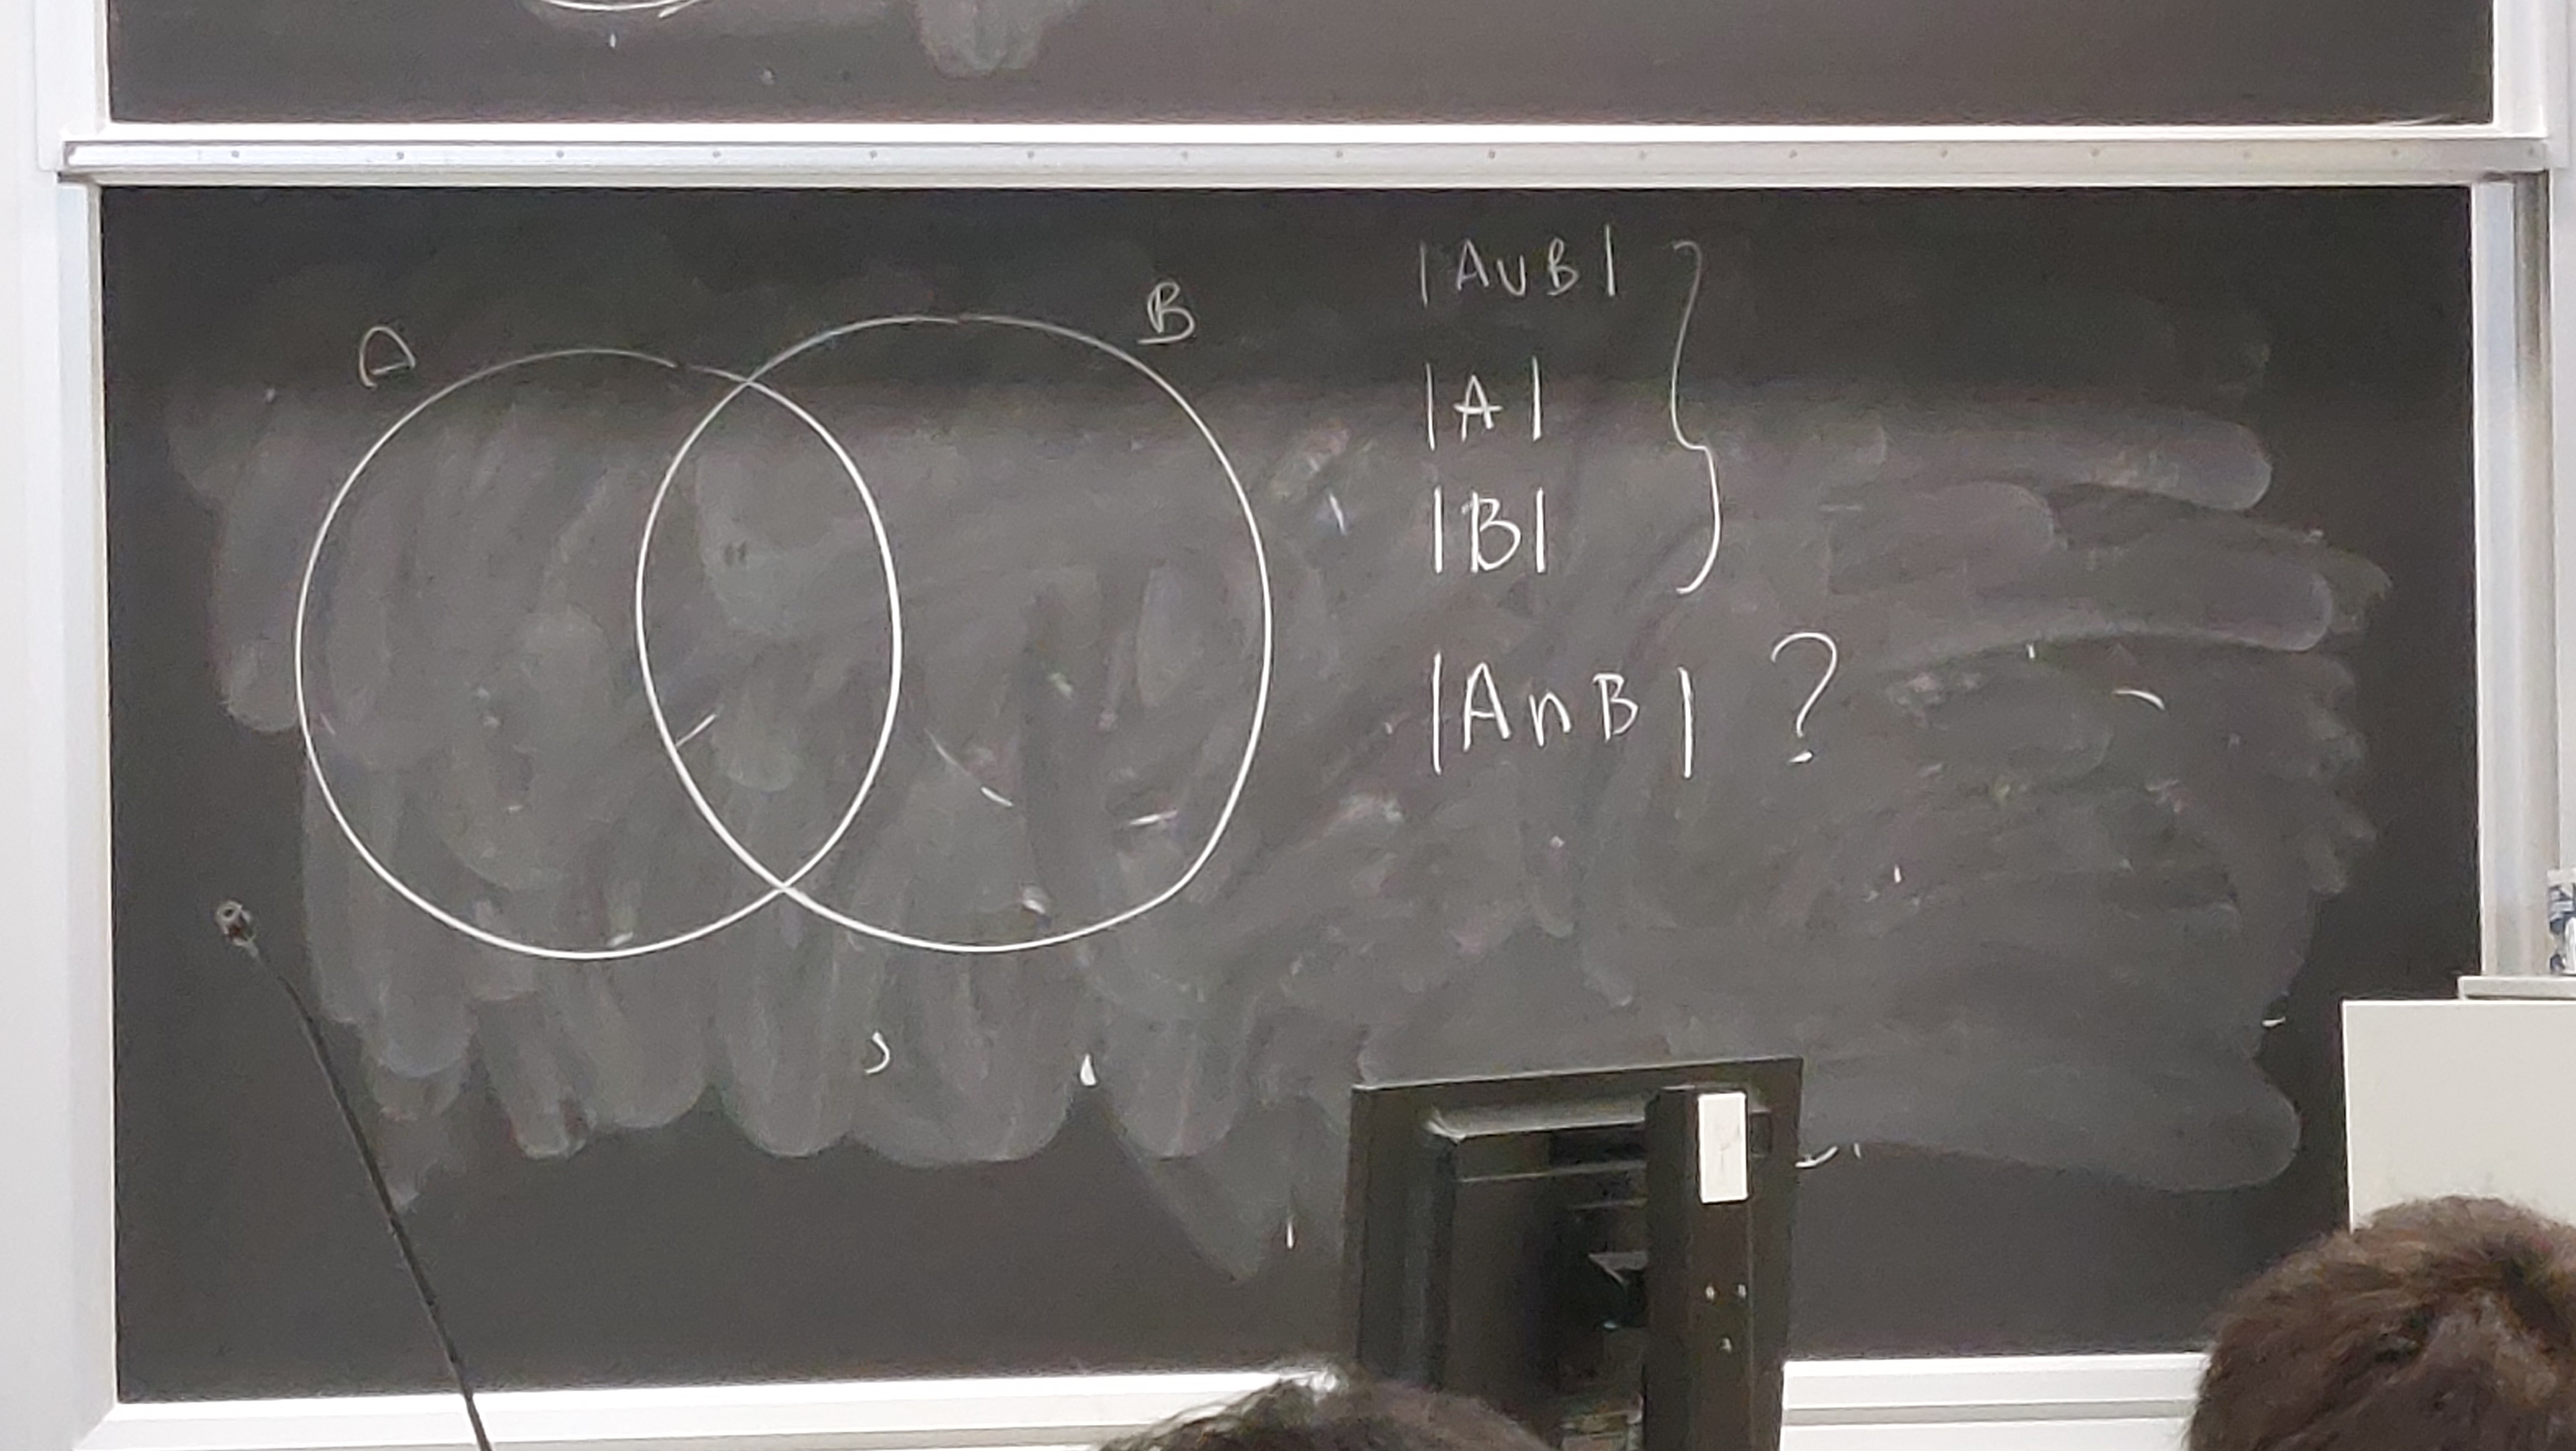 A
B
|A∪B|
|A|
|B|
}
|A∩B| ?